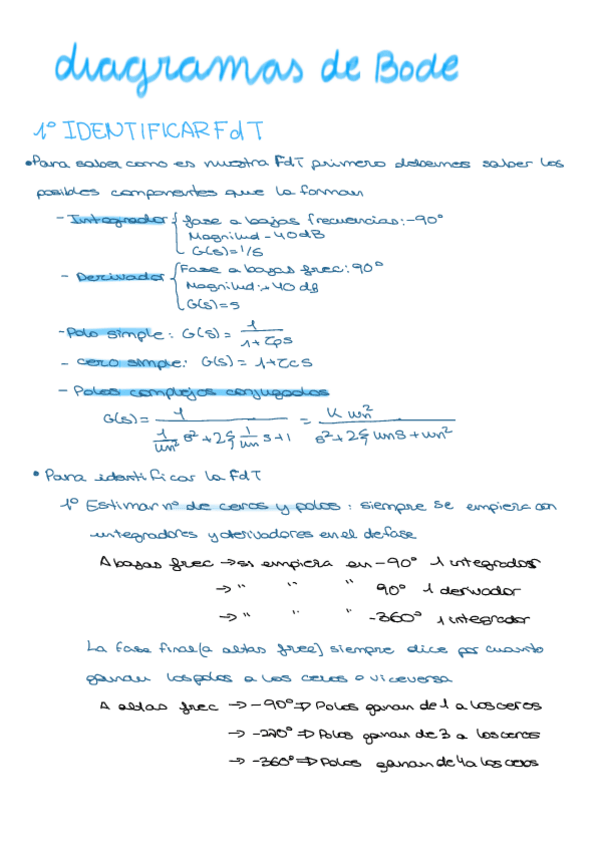 diagramas de Bode
1º IDENTIFICAR FdT
•Para saber como es nuestra FdT primero debemos saber los
posibles componentes que la forman
- Integrador { fase a bajas frecuencias: -90º
Magnitud - 40dB
G(s)=1/s
- Derivador { Fase a bajas frec: 90º
Magnitud:+40 dB
G(s)=s
-Polo simple: G(s) = 1 / (1+τps)
- cero simple: G(s) = 1+τcs
- Polos complejos conjugados
G(s) = 1 / (1/ωn² s² + 2ξ 1/ωn s+1) = K ωn² / (s²+2ξ ωns+ωn²)
• Para identificar la FdT
1º Estimar nº de ceros y polos : siempre se empieza con
integradores y derivadores en el defase
A bajas frec → si empieza en -90º 1 integrador
→ " " " 90º 1 derivador
→ " " " -360º 1 integrador
La fase final(a altas frec) siempre dice por cuanto
ganan los polos a los ceros o viceversa
A altas frec → -90º ⇒ Polos ganan de 1 a los ceros
→ -270º ⇒ Polos ganan de 3 a los ceros
→ -360º ⇒ Polos ganan de 4 a los ceros